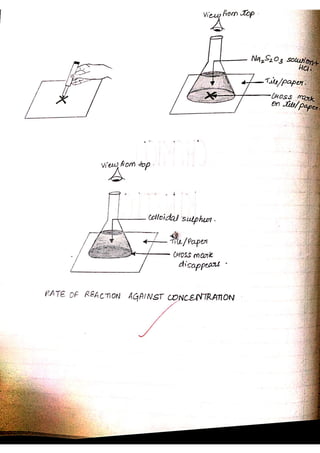 View from top.
Na₂S₂O₃ solution+
HCl.
Tile/paper.
cross mark
on tile/paper
View from top
colloidal sulphur.
Tile/Paper
cross mark
disappears.
RATE OF REACTION AGAINST CONCENTRATION